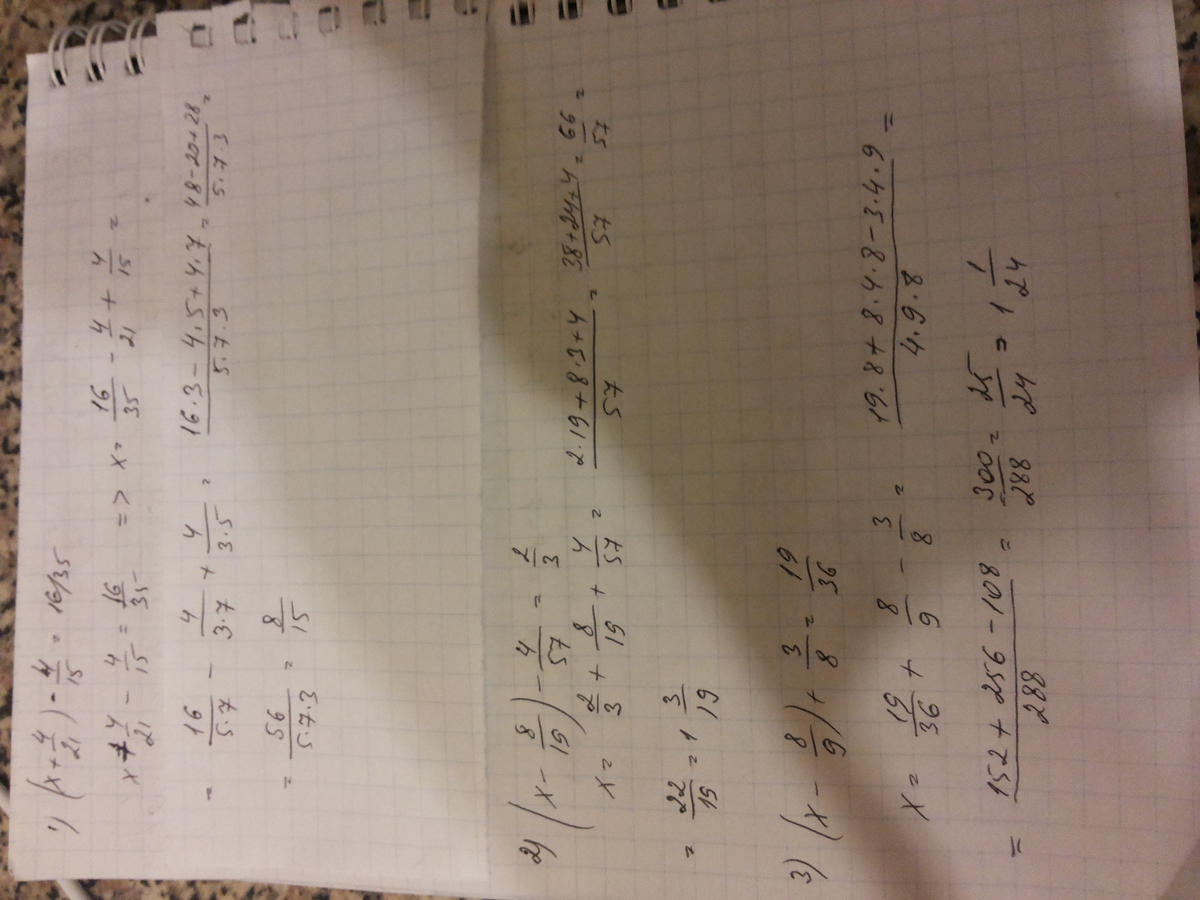 1) (x + 4/21) - 4/15 = 16/35
x + 4/21 - 4/15 = 16/35 => x = 16/35 - 4/21 + 4/15 =
= 16/(5·7) - 4/(3·7) + 4/(3·5) = (16·3 - 4·5 + 4·7)/(5·7·3) = (48 - 20 + 28)/(5·7·3) =
= 56/(5·7·3) = 8/15
2) (x - 8/19) - 4/57 = 2/3
x = 2/3 + 8/19 + 4/57 = (2·19 + 8·3 + 4)/57 = (38 + 24 + 4)/57 = 66/57 =
= 22/19 = 1 3/19
3) (x - 8/9) + 3/8 = 19/36
x = 19/36 + 8/9 - 3/8 = (19·8 + 8·4·8 - 3·4·9)/(4·9·8) =
= (152 + 256 - 108)/288 = 300/288 = 25/24 = 1 1/24